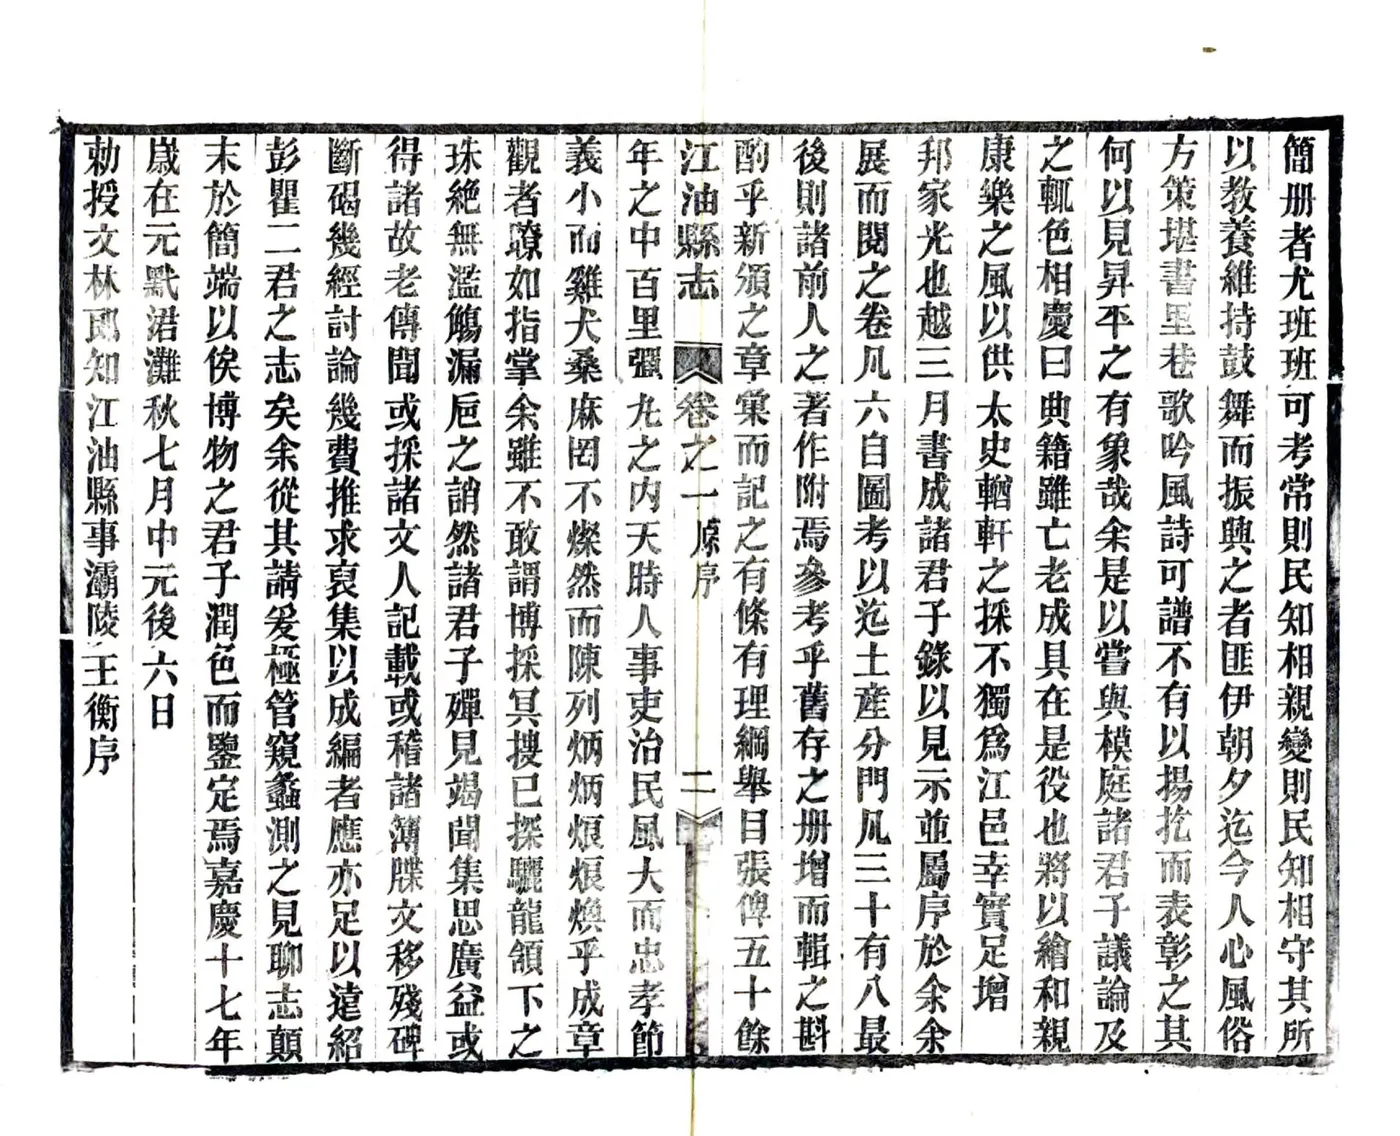 簡册者尤班班可考常則民知相親變則民知相守其所
以敎養維持鼓舞而振興之者匪伊朝夕迄今人心風俗
方策堪書里巷歌吟風詩可譜不有以揚扢而表彰之其
何以見昇平之有象哉余是以嘗與模庭諸君子議論及
之輒色相慶曰典籍雖亡老成具在是役也將以繪和親
康樂之風以供太史輶軒之採不獨爲江邑幸實足增
邦家光也越三月書成諸君子錄以見示並屬序於余余
展而閱之卷凡六自圖考以迄土產分門凡三十有八最
後則諸前人之著作附焉參考乎舊存之册增而輯之斟
酌乎新頒之章彙而記之有條有理綱舉目張俾五十餘
江油縣志 卷之一 原序 二
年之中百里彊九之內天時人事吏治民風大而忠孝節
義小而雞犬桑麻罔不燦然而陳列炳炳烺烺煥乎成章
觀者瞭如指掌余雖不敢謂博採冥搜已探驪龍頷下之
珠絕無濫觴漏巵之誚然諸君子殫見竭聞集思廣益或
得諸故老傳聞或採諸文人記載或稽諸簿牒文移殘碑
斷碣幾經討論幾費推求裒集以成編者應亦足以遠紹
彭瞿二君之志矣余從其請爰極管窺蠡測之見聊志顛
末於簡端以俟博物之君子潤色而鑒定焉嘉慶十七年
歲在元黓涒灘秋七月中元後六日
勅授文林郎知江油縣事灞陵王衡序